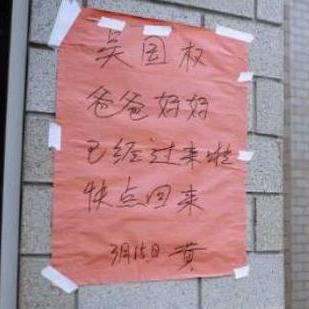 吴国权
爸爸好好
已经过来啦
快点回来
3月15日 黄